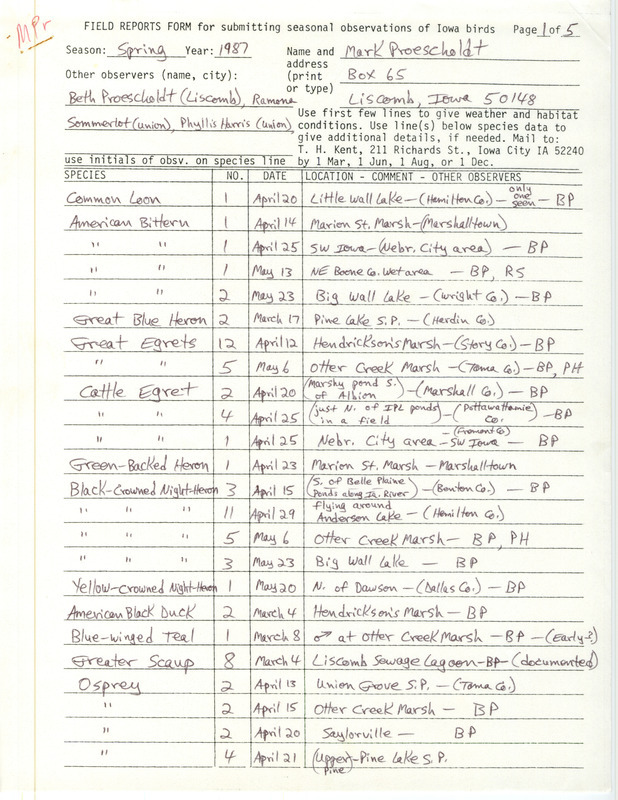 MPr
FIELD REPORTS FORM for submitting seasonal observations of Iowa birds Page 1 of 5
Season: Spring Year: 1987 Name and Mark Proescholdt
address
Other observers (name, city): (print Box 65
or type)
Beth Proescholdt (Liscomb), Ramona Liscomb, Iowa 50148
Sommerlot (Union), Phyllis Harris (Union) Use first few lines to give weather and habitat
conditions. Use line(s) below species data to
give additional details, if needed. Mail to:
T. H. Kent, 211 Richards St., Iowa City IA 52240
use initials of obsv. on species line by 1 Mar, 1 Jun, 1 Aug, or 1 Dec.
SPECIES NO. DATE LOCATION - COMMENT - OTHER OBSERVERS
Common Loon 1 April 20 Little Wall Lake - (Hamilton Co.) - only one seen - BP
American Bittern 1 April 14 Marion St. Marsh - (Marshalltown)
" " 1 April 25 SW Iowa - (Nebr. City area) - BP
" " 1 May 13 NE Boone Co. Wet area - BP, RS
" " 2 May 23 Big Wall Lake - (Wright Co.) - BP
Great Blue Heron 2 March 17 Pine Lake S.P. - (Hardin Co.)
Great Egrets 12 April 12 Hendrickson's Marsh - (Story Co.) - BP
" " 5 May 6 Otter Creek Marsh - (Tama Co.) - BP, PH
Cattle Egret 2 April 20 (Marshy pond S. of Albion) - (Marshall Co.) - BP
" " 4 April 25 (just N. of IPL ponds in a field) - (Pottawattamie Co.) - BP
" " 1 April 25 Nebr. City area - SW Iowa - (Fremont Co) - BP
Green-Backed Heron 1 April 23 Marion St. Marsh - Marshalltown
Black-Crowned Night-Heron 3 April 15 (S. of Belle Plaine Ponds along Ia. River) - (Benton Co.) - BP
" " " 11 April 29 flying around Anderson Lake - (Hamilton Co.)
" " " 5 May 6 Otter Creek Marsh - BP, PH
" " " 3 May 23 Big Wall Lake - BP
Yellow-crowned Night-Heron 1 May 20 N. of Dawson - (Dallas Co.) - BP
American Black Duck 2 March 4 Hendrickson's Marsh - BP
Blue-winged Teal 1 March 8 ♂ at Otter Creek Marsh - BP - (Early?)
Greater Scaup 8 March 4 Liscomb Sewage Lagoon - BP - (documented)
Osprey 2 April 13 Union Grove S.P. - (Tama Co.)
" 2 April 15 Otter Creek Marsh - BP
" 2 April 20 Saylorville - BP
" 4 April 21 (Upper Pine) - Pine Lake S.P.